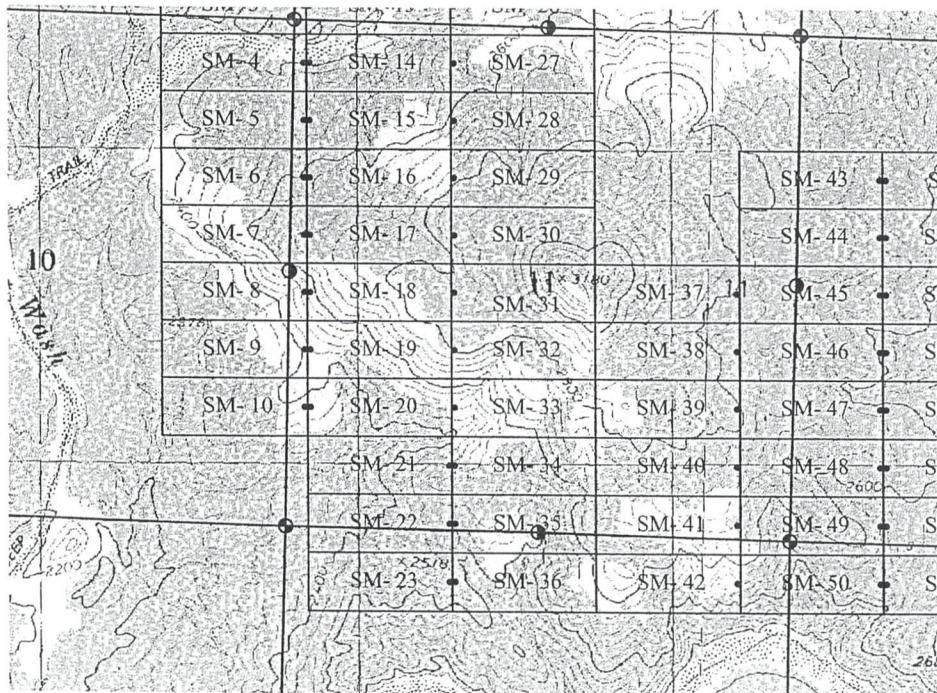 SM- 4 SM- 14 SM- 27
SM- 5 SM- 15 SM- 28
TRAIL
SM- 6 SM- 16 SM- 29 SM- 43
SM- 7 SM- 17 SM- 30 SM- 44
10
SM- 8 SM- 18 11 × 3180 SM- 31 SM- 37 SM- 45
Wash
SM- 9 SM- 19 SM- 32 SM- 38 SM- 46
SM- 10 SM- 20 SM- 33 SM- 39 SM- 47
SM- 21 SM- 34 SM- 40 SM- 48
2600
SM- 22 SM- 35 SM- 41 SM- 49
2200 × 2518
SM- 23 SM- 36 SM- 42 SM- 50